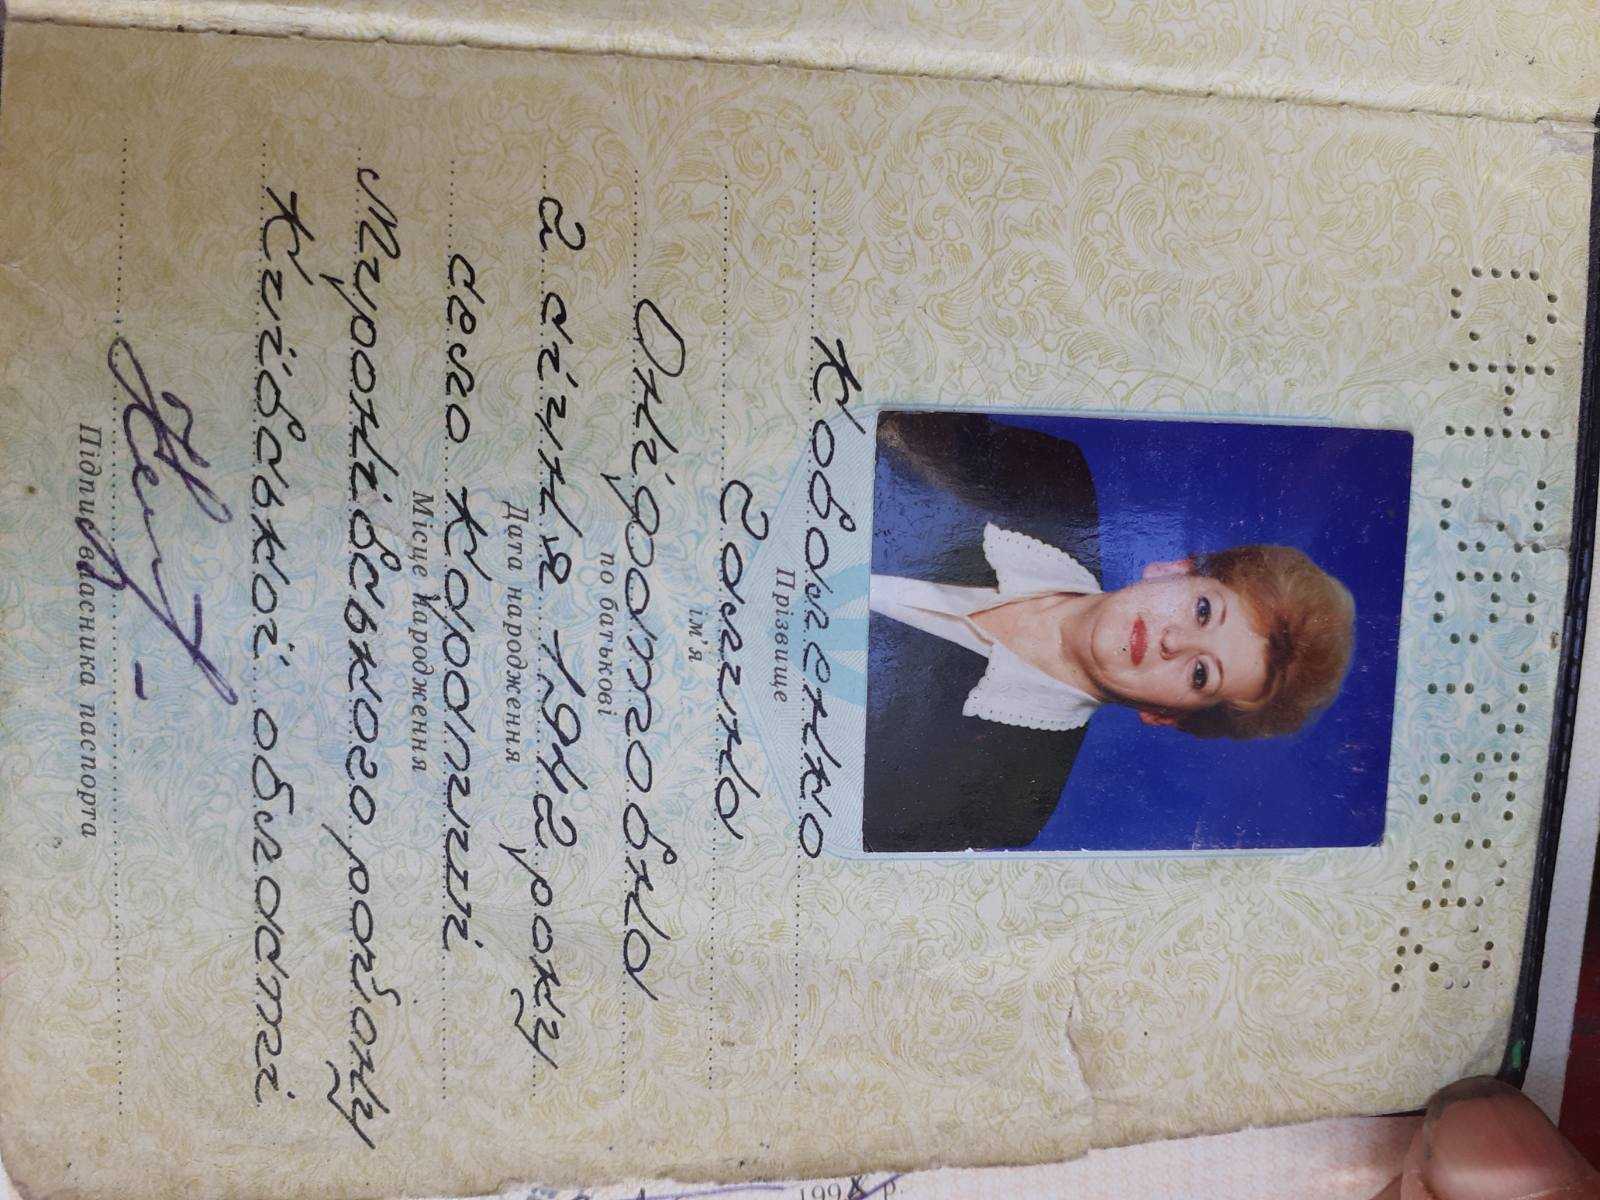 Коваленко
Прізвище
Галина
ім'я
по батькові
2 січня 1942 року
Дата народження
село Карапиші
Місце народження
Миронівського району
Київської області
Підпис власника паспорта